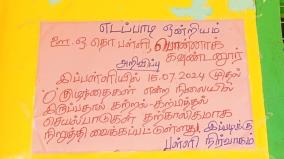 எடப்பாடி ஒன்றியம்
ஊ.ஒ தொ பள்ளி, பொன்னாக்
கவுண்டனூர்
அறிவிப்பு
இப்பள்ளியில் 15.07.2024 முதல்
0 குழந்தைகள் என்ற நிலையில்
இருப்பதால் கற்றல்-கற்பித்தல்
செயல்பாடுகள் தற்காலிகமாக
நிறுத்தி வைக்கப்பட்டுள்ளது. இப்படிக்கு
பள்ளி நிர்வாகம்